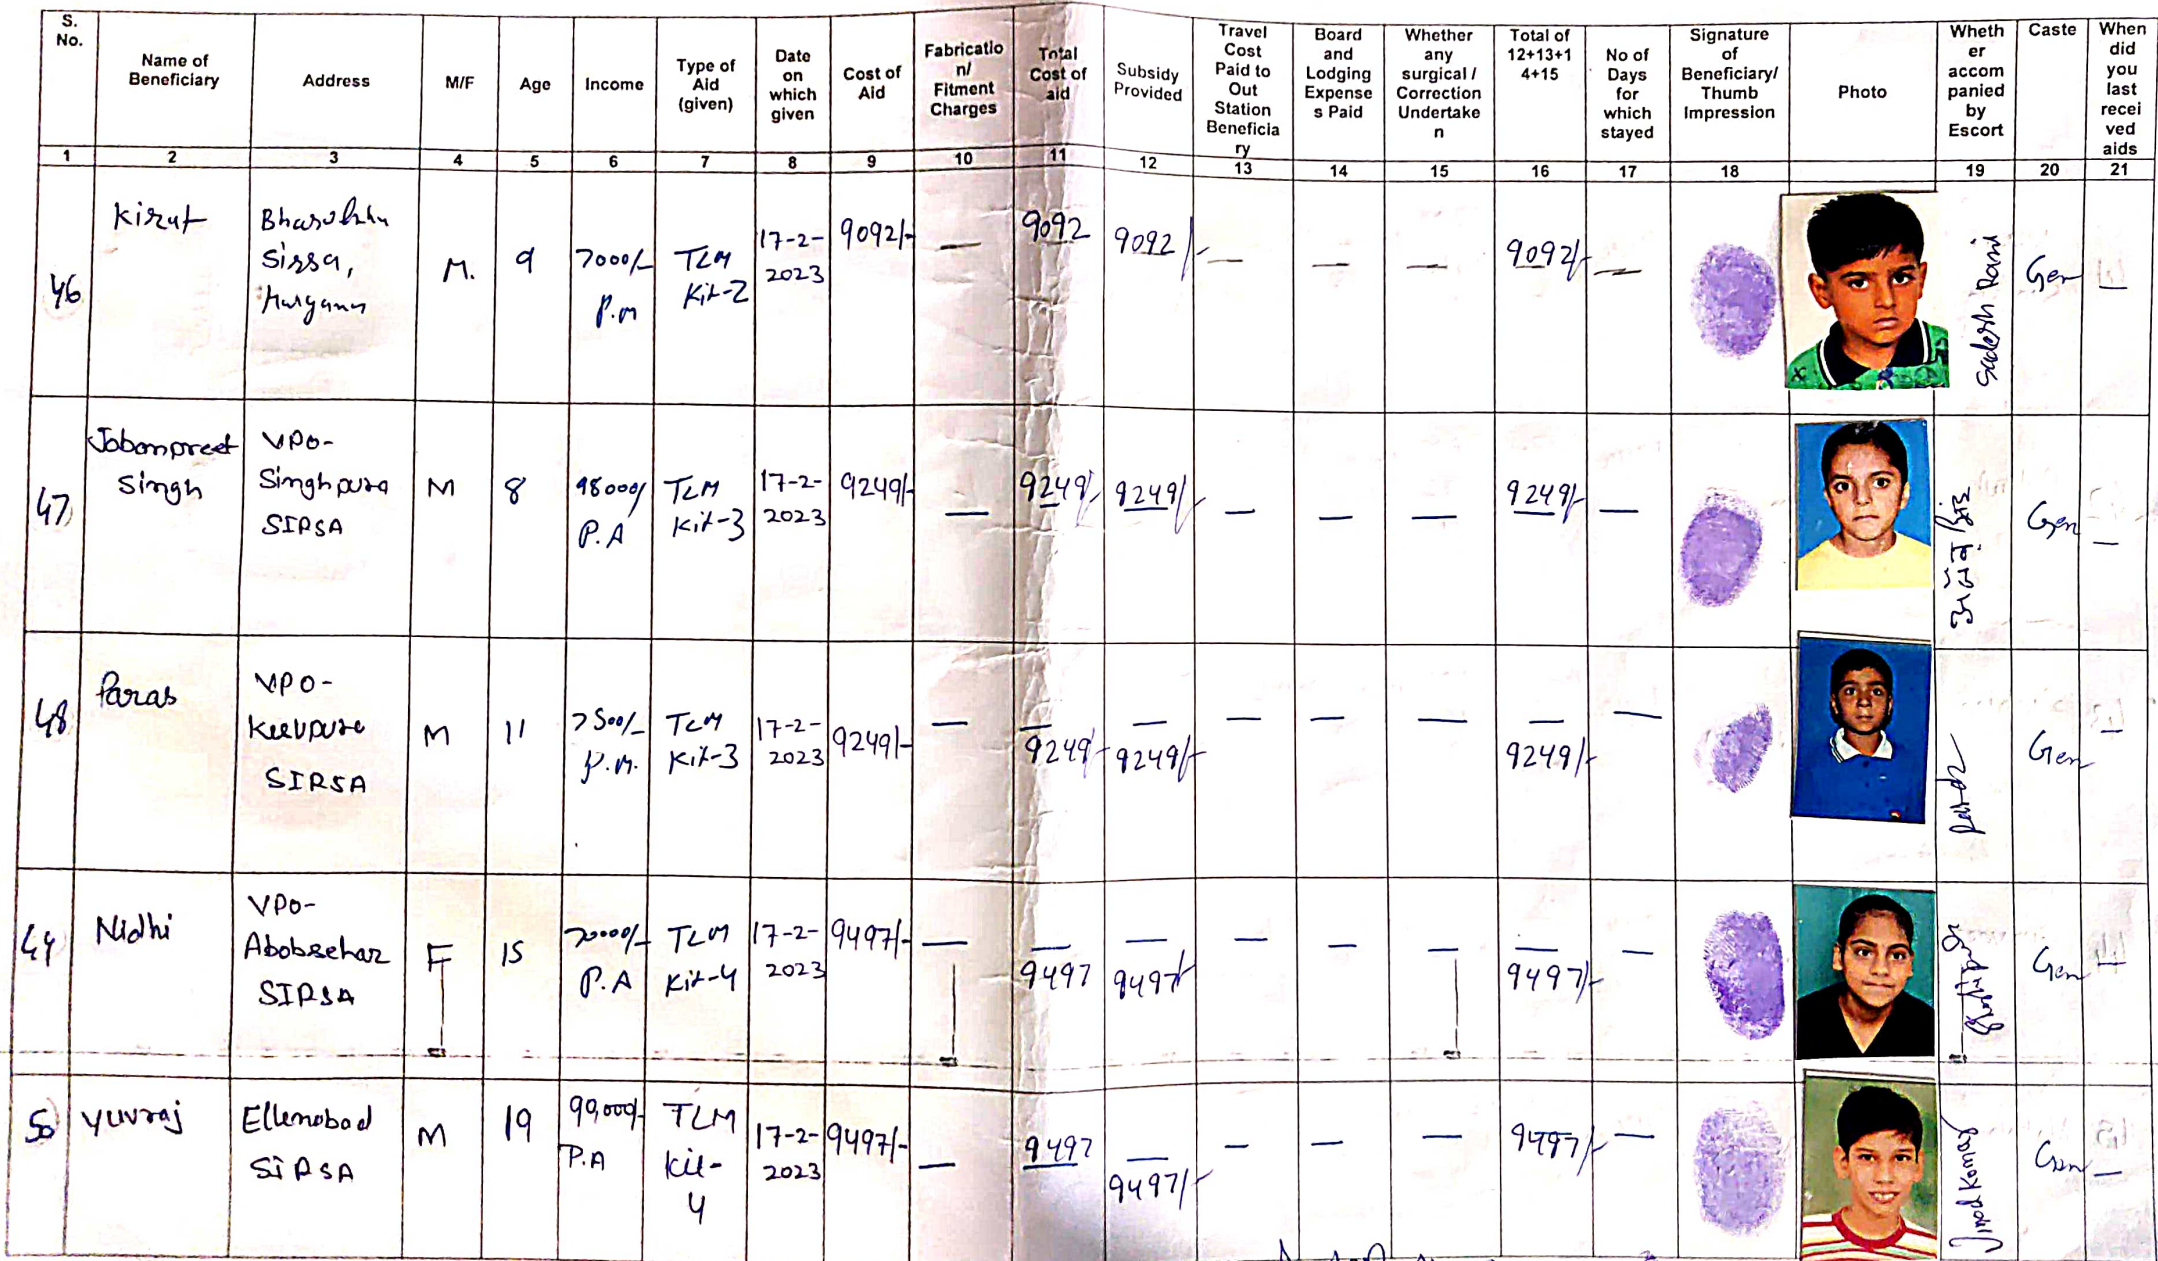 S. No.
Name of Beneficiary
Address
M/F
Age
Income
Type of Aid (given)
Date on which given
Cost of Aid
Fabricatio n/ Fitment Charges
Total Cost of aid
Subsidy Provided
Travel Cost Paid to Out Station Beneficia ry
Board and Lodging Expense s Paid
Whether any surgical / Correction Undertake n
Total of 12+13+1 4+15
No of Days for which stayed
Signature of Beneficiary/ Thumb Impression
Photo
Wheth er accom panied by Escort
Caste
When did you last recei ved aids
1 2 3 4 5 6 7 8 9 10 11 12 13 14 15 16 17 18 19 20 21
46 Kirat Sirsa, M. 9 7000/- P.m TLM Kit-2 17-2-2023 9092/- — 9092 9092/- — — — 9092/- — Gen —
47 Jobanpreet Singh VPO- Singhpura SIRSA M 8 98000/ P.A TLM Kit-3 17-2-2023 9249/- — 9249/- 9249/- — — — 9249/- — Gen —
48 Paras VPO- SIRSA M 11 7500/- P.M. TLM Kit-3 17-2-2023 9249/- — 9249/- 9249/- — — — 9249/- — Gen —
49 Nidhi VPO- SIRSA F 15 P.A TLM Kit-4 17-2-2023 9497/- — 9497 9497/- — — — 9497/- — Gen —
50 Yuvraj Ellenabad SIRSA M 19 99,000/- P.A TLM Kit-4 17-2-2023 9497/- — 9497 9497/- — — — 9497/- — Gen —